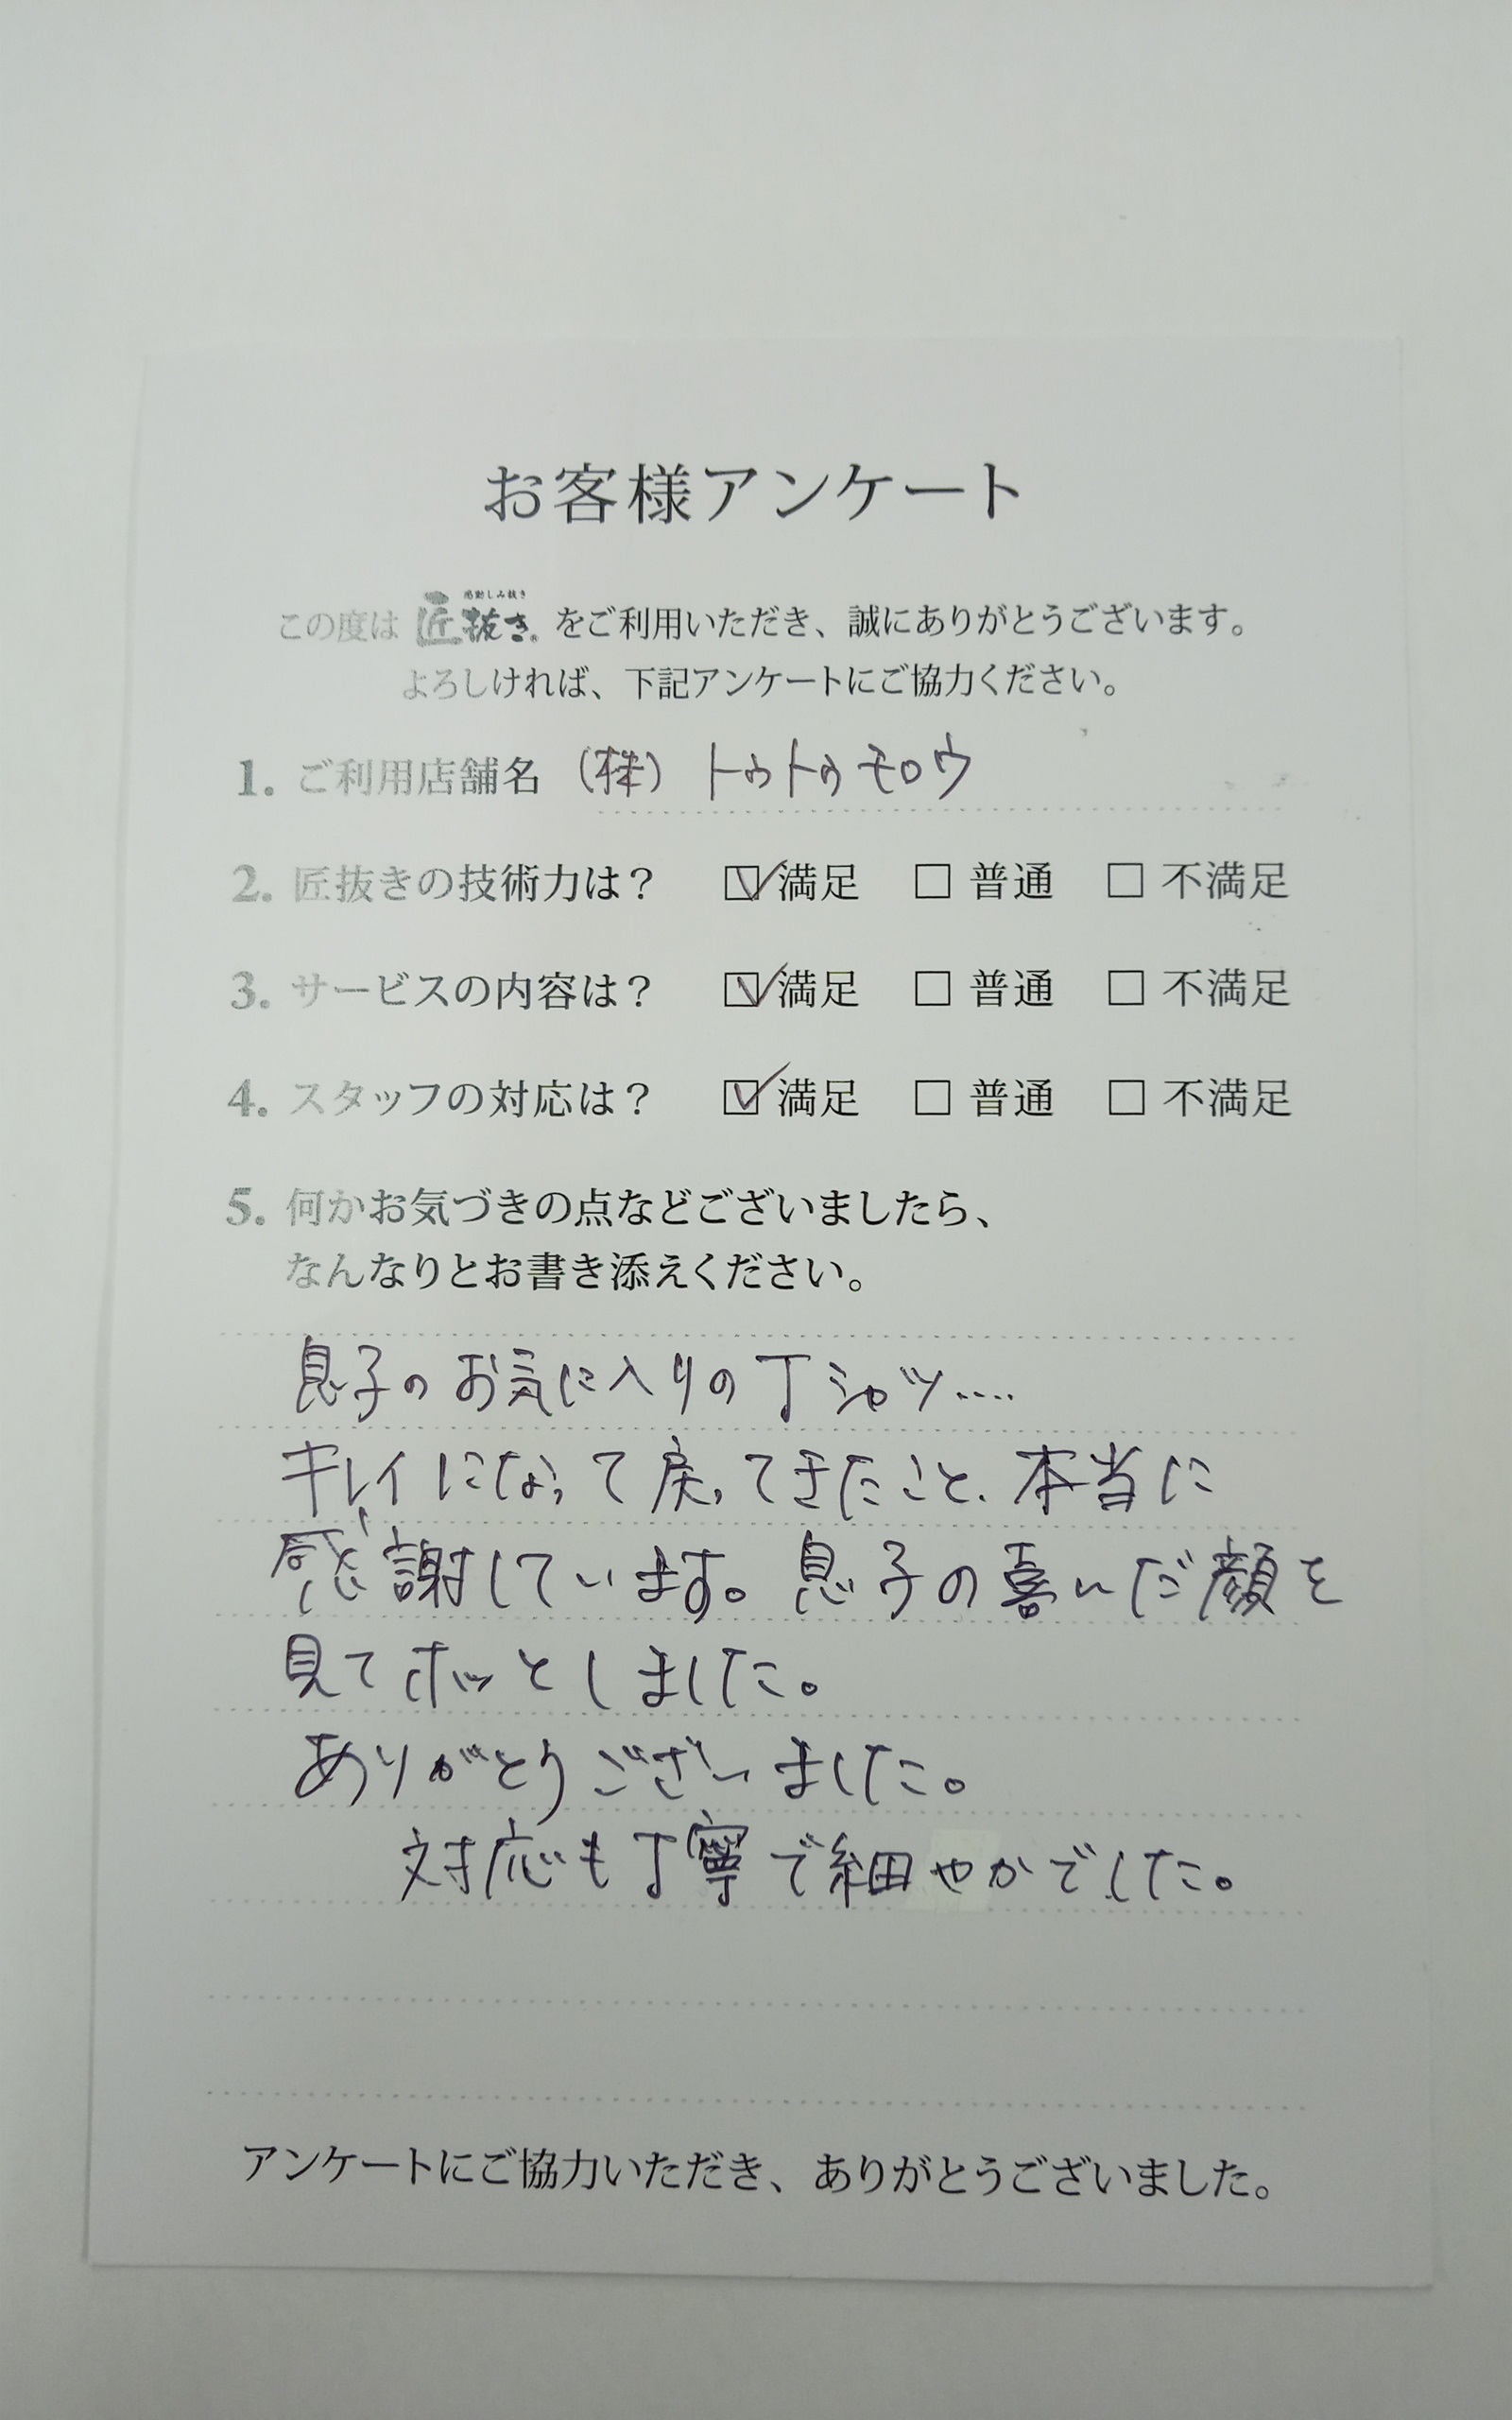 お客様アンケート
感動しみ抜き
この度は 匠抜き をご利用いただき、誠にありがとうございます。
よろしければ、下記アンケートにご協力ください。
1. ご利用店舗名 (株) トゥトゥモロウ
2. 匠抜きの技術力は? ☑ 満足 □ 普通 □ 不満足
3. サービスの内容は? ☑ 満足 □ 普通 □ 不満足
4. スタッフの対応は? ☑ 満足 □ 普通 □ 不満足
5. 何かお気づきの点などございましたら、
なんなりとお書き添えください。
息子のお気に入りのTシャツ....
キレイになって戻ってきたこと、本当に
感謝しています。息子の喜んだ顔を
見てホッとしました。
ありがとうございました。
対応も丁寧で細やかでした。
アンケートにご協力いただき、ありがとうございました。